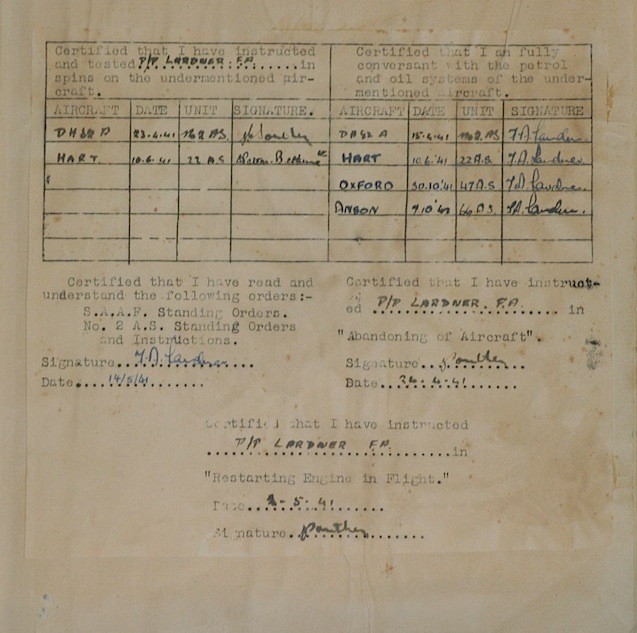 Certified that I have instructed
and tested P/P LARDNER. F.A. in
spins on the undermentioned air-
craft.
AIRCRAFT DATE UNIT SIGNATURE.
DH82 A 23.4.41 A.S.
HART. 10.6.41 22 A.S
Certified that I am fully
conversant with the petrol
and oil systems of the under-
mentioned aircraft.
AIRCRAFT DATE UNIT SIGNATURE
DH82 A 15.4.41 A.S F.A. Lardner
HART 10.6.'41 22 A.S F.A. Lardner
OXFORD 30.10'41 47 A.S F.A. Lardner.
ANSON 9.10' A.S F.A. Lardner.
Certified that I have read and
understand the following orders:-
S.A.A.F. Standing Orders.
No. 2 A.S. Standing Orders
and Instructions.
Signature...F.A. Lardner
Date....14/5/41
Certified that I have instruct-
ed P/P LARDNER. F.A. in
"Abandoning of Aircraft".
Signature
Date... 4.41
Certified that I have instructed
P/P LARDNER F.A.
in
"Restarting Engine in Flight."
Date 5.41
Signature